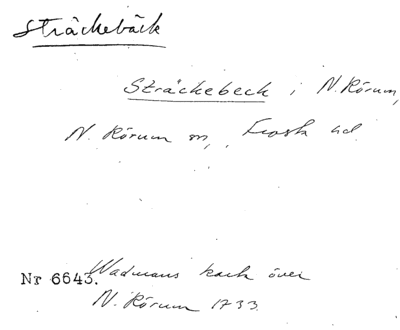 Sträckebäck
Sträckebeck i N. Rörum,
N. Rörum sn, Frosta hd
Nr 6643. Wadmans karta över
N. Rörum 1733.